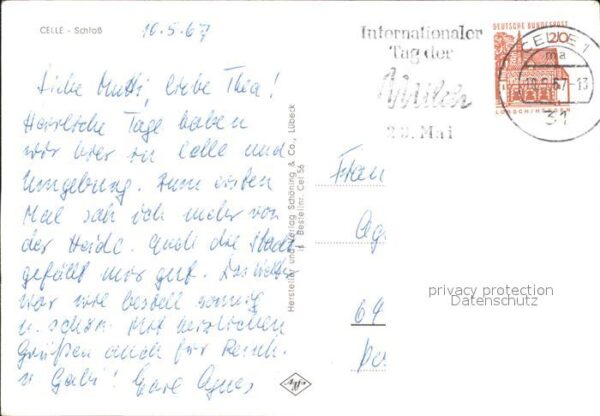 CELLE - Schloß
10.5.67
Liebe Mutti, liebe Thea!
Herrliche Tage haben
wir hier in Celle und
Umgebung. Zum ersten
Mal sah ich mehr von
der Heide. Auch die Stadt
gefällt mir gut. Das Wetter
war wie bestellt sonnig
u. schön. Mit herzlichen
Grüßen auch für
u Gabi! Eure Agnes
Hersteller und Verlag Schöning & Co., Lübeck
Bestellnr. Cel 56
Internationaler
Tag der
Milch
23. Mai
DEUTSCHE BUNDESPOST
20
LORSCH/HESSEN
CELLE 1
ma
10.5.67-13
31
Frau
Ag
64
privacy protection
Datenschutz